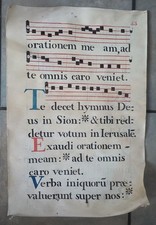 orationem me am, ad
te omnis caro veniet.
Te decet hymnus De-
us in Sion: & tibi red-
detur votum in Jerusalē.
Exaudi orationem
meam: ad te omnis
caro veniet.
Verba iniquorū præ-
valuerunt super nos: